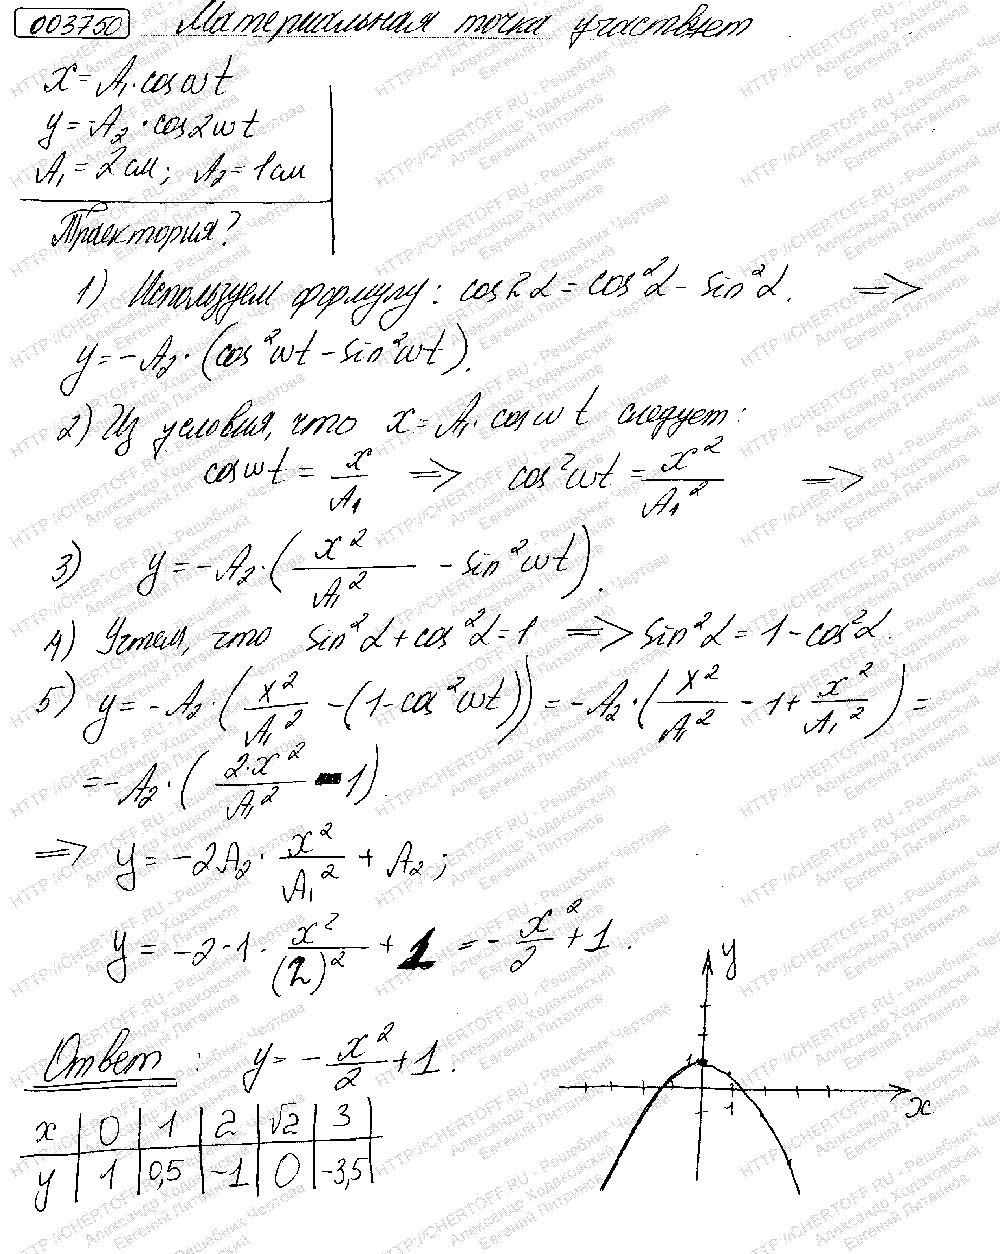 003750 Материальная точка участвует
x = A₁·cosωt
y = -A₂·cos2ωt
A₁ = 2 см; A₂ = 1 см
Траектория?
1) Используем формулу: cos2α = cos²α - sin²α. =>
y = -A₂·(cos²ωt - sin²ωt).
2) Из условия, что x = A₁·cosωt следует:
cosωt = x/A₁ => cos²ωt = x²/A₁² =>
3) y = -A₂·(x²/A₁² - sin²ωt).
4) Учтем, что sin²α + cos²α = 1 => sin²α = 1 - cos²α.
5) y = -A₂·(x²/A₁² - (1 - cos²ωt)) = -A₂·(x²/A₁² - 1 + x²/A₁²) =
= -A₂·(2·x²/A₁² - 1)
=> y = -2A₂·x²/A₁² + A₂;
y = -2·1·x²/(2)² + 1 = -x²/2 + 1.
Ответ: y = -x²/2 + 1.
x | 0 | 1 | 2 | √2 | 3
y | 1 | 0,5 | -1 | 0 | -3,5
y
1
1
x
HTTP://CHERTOFF.RU - Решебник Чертова
Александр Ходаковский
Евгений Литвинов